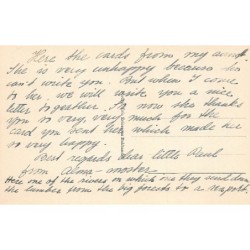 Here the cards from my aunt.
She is very unhappy because she
can't write you. But when I come
to her, we will write you a nice
letter together. So now she thanks
you so very, very much for the
card you sent her, which made her
so very happy.
Best regards dear little Paul
from Alma-moster
Here one of the rivers on which one they send down
the timber from the big forests to a seaport.